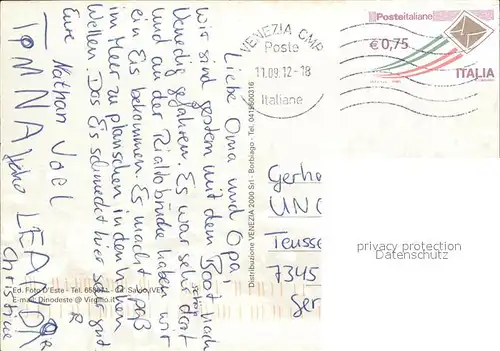 Liebe Oma und Opa
wir sind gestern mit dem Boot nach
Venedig gefahren. Es war sehr schön dort
und an der Rialtobrücke haben wir
ein Eis bekommen. Es macht Spaß
im Meer zu planschen in den hohen
Wellen. Das Eis schmeckt hier so gut.
Eure Nathan Joel
TOM NA
LEANDER
Christine
Ed. Foto D'Este - Tel. 658871 - Ca' Savio (VE)
E-mail: Dinodeste @ Virgilio.it
Distribuzione VENEZIA 2000 Srl - Borbiago - Tel. 0415600316
VENEZIA CMP
Poste
11.09.12-18
Italiane
Posteitaliane
€ 0,75
ITALIA
Gerh
UN
Teusse
7345
Ger
privacy protection
Datenschutz